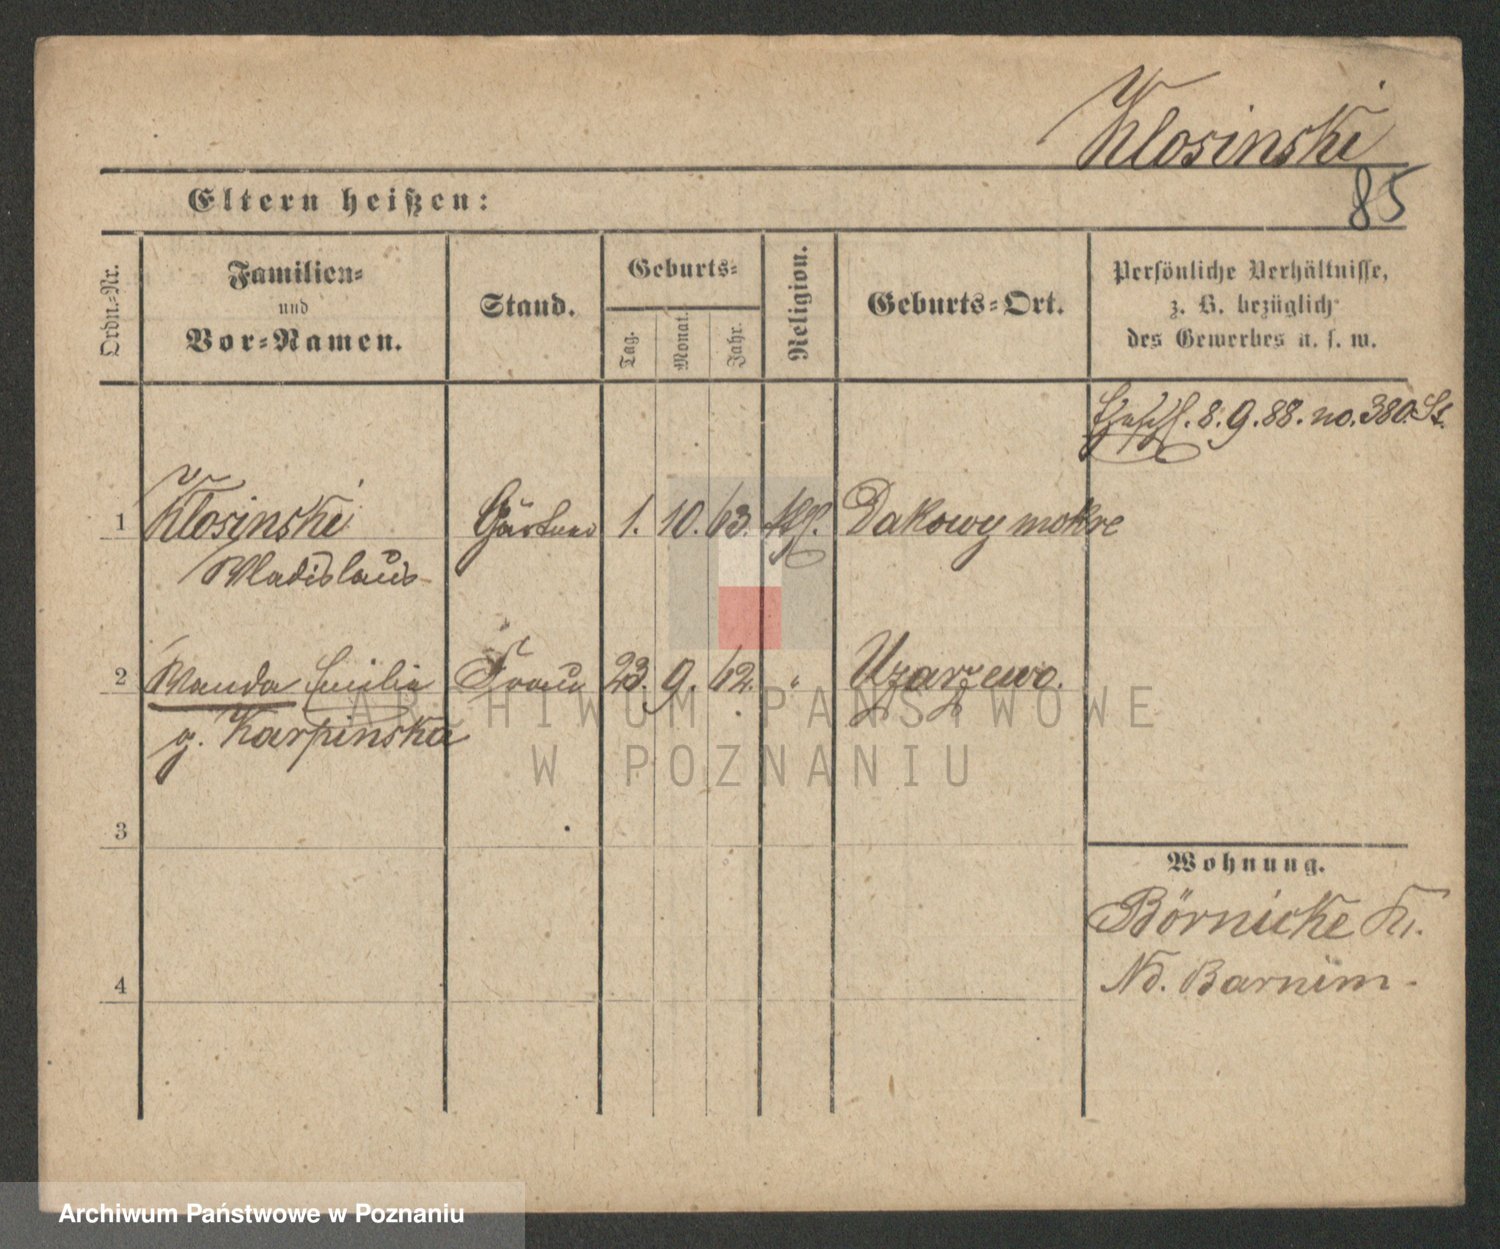 Klosinski
85
Eltern heißen:
Ordn.=Nr.
Familien=
und
Vor=Namen.
Stand.
Geburts=
Tag.
Monat.
Jahr.
Religion.
Geburts=Ort.
Persönliche Verhältnisse,
z. B. bezüglich
des Gewerbes u. s. w.
8. 9. 88. no. 380. St.
1 Klosinski Gärtner 1. 10. 63. kath. Dakowy mokre
Wladislaus
2 Wanda Emilie Frau 23. 9. 62. " Uzarzewo.
g. Karpinska
3
4
Wohnung.
Börnicke Kr.
Nd. Barnim.
ARCHIWUM PAŃSTWOWE
W POZNANIU
Archiwum Państwowe w Poznaniu